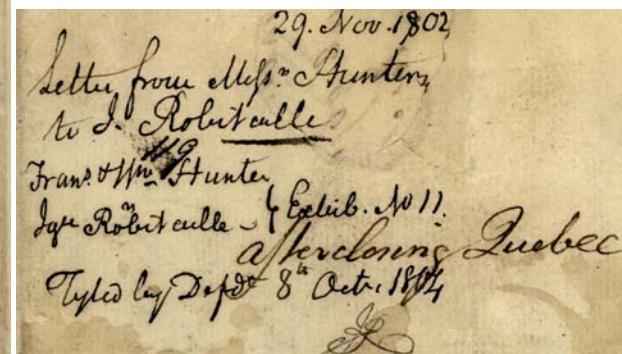 29. Nov. 1802
Letter from Messrs. Hunters
to J. Robitaille
119
Frans. & Wm. Hunter
Robitaille } Exhib. No 11.
after closing Quebec
Fyled by Defdt 8th Octr. 1804